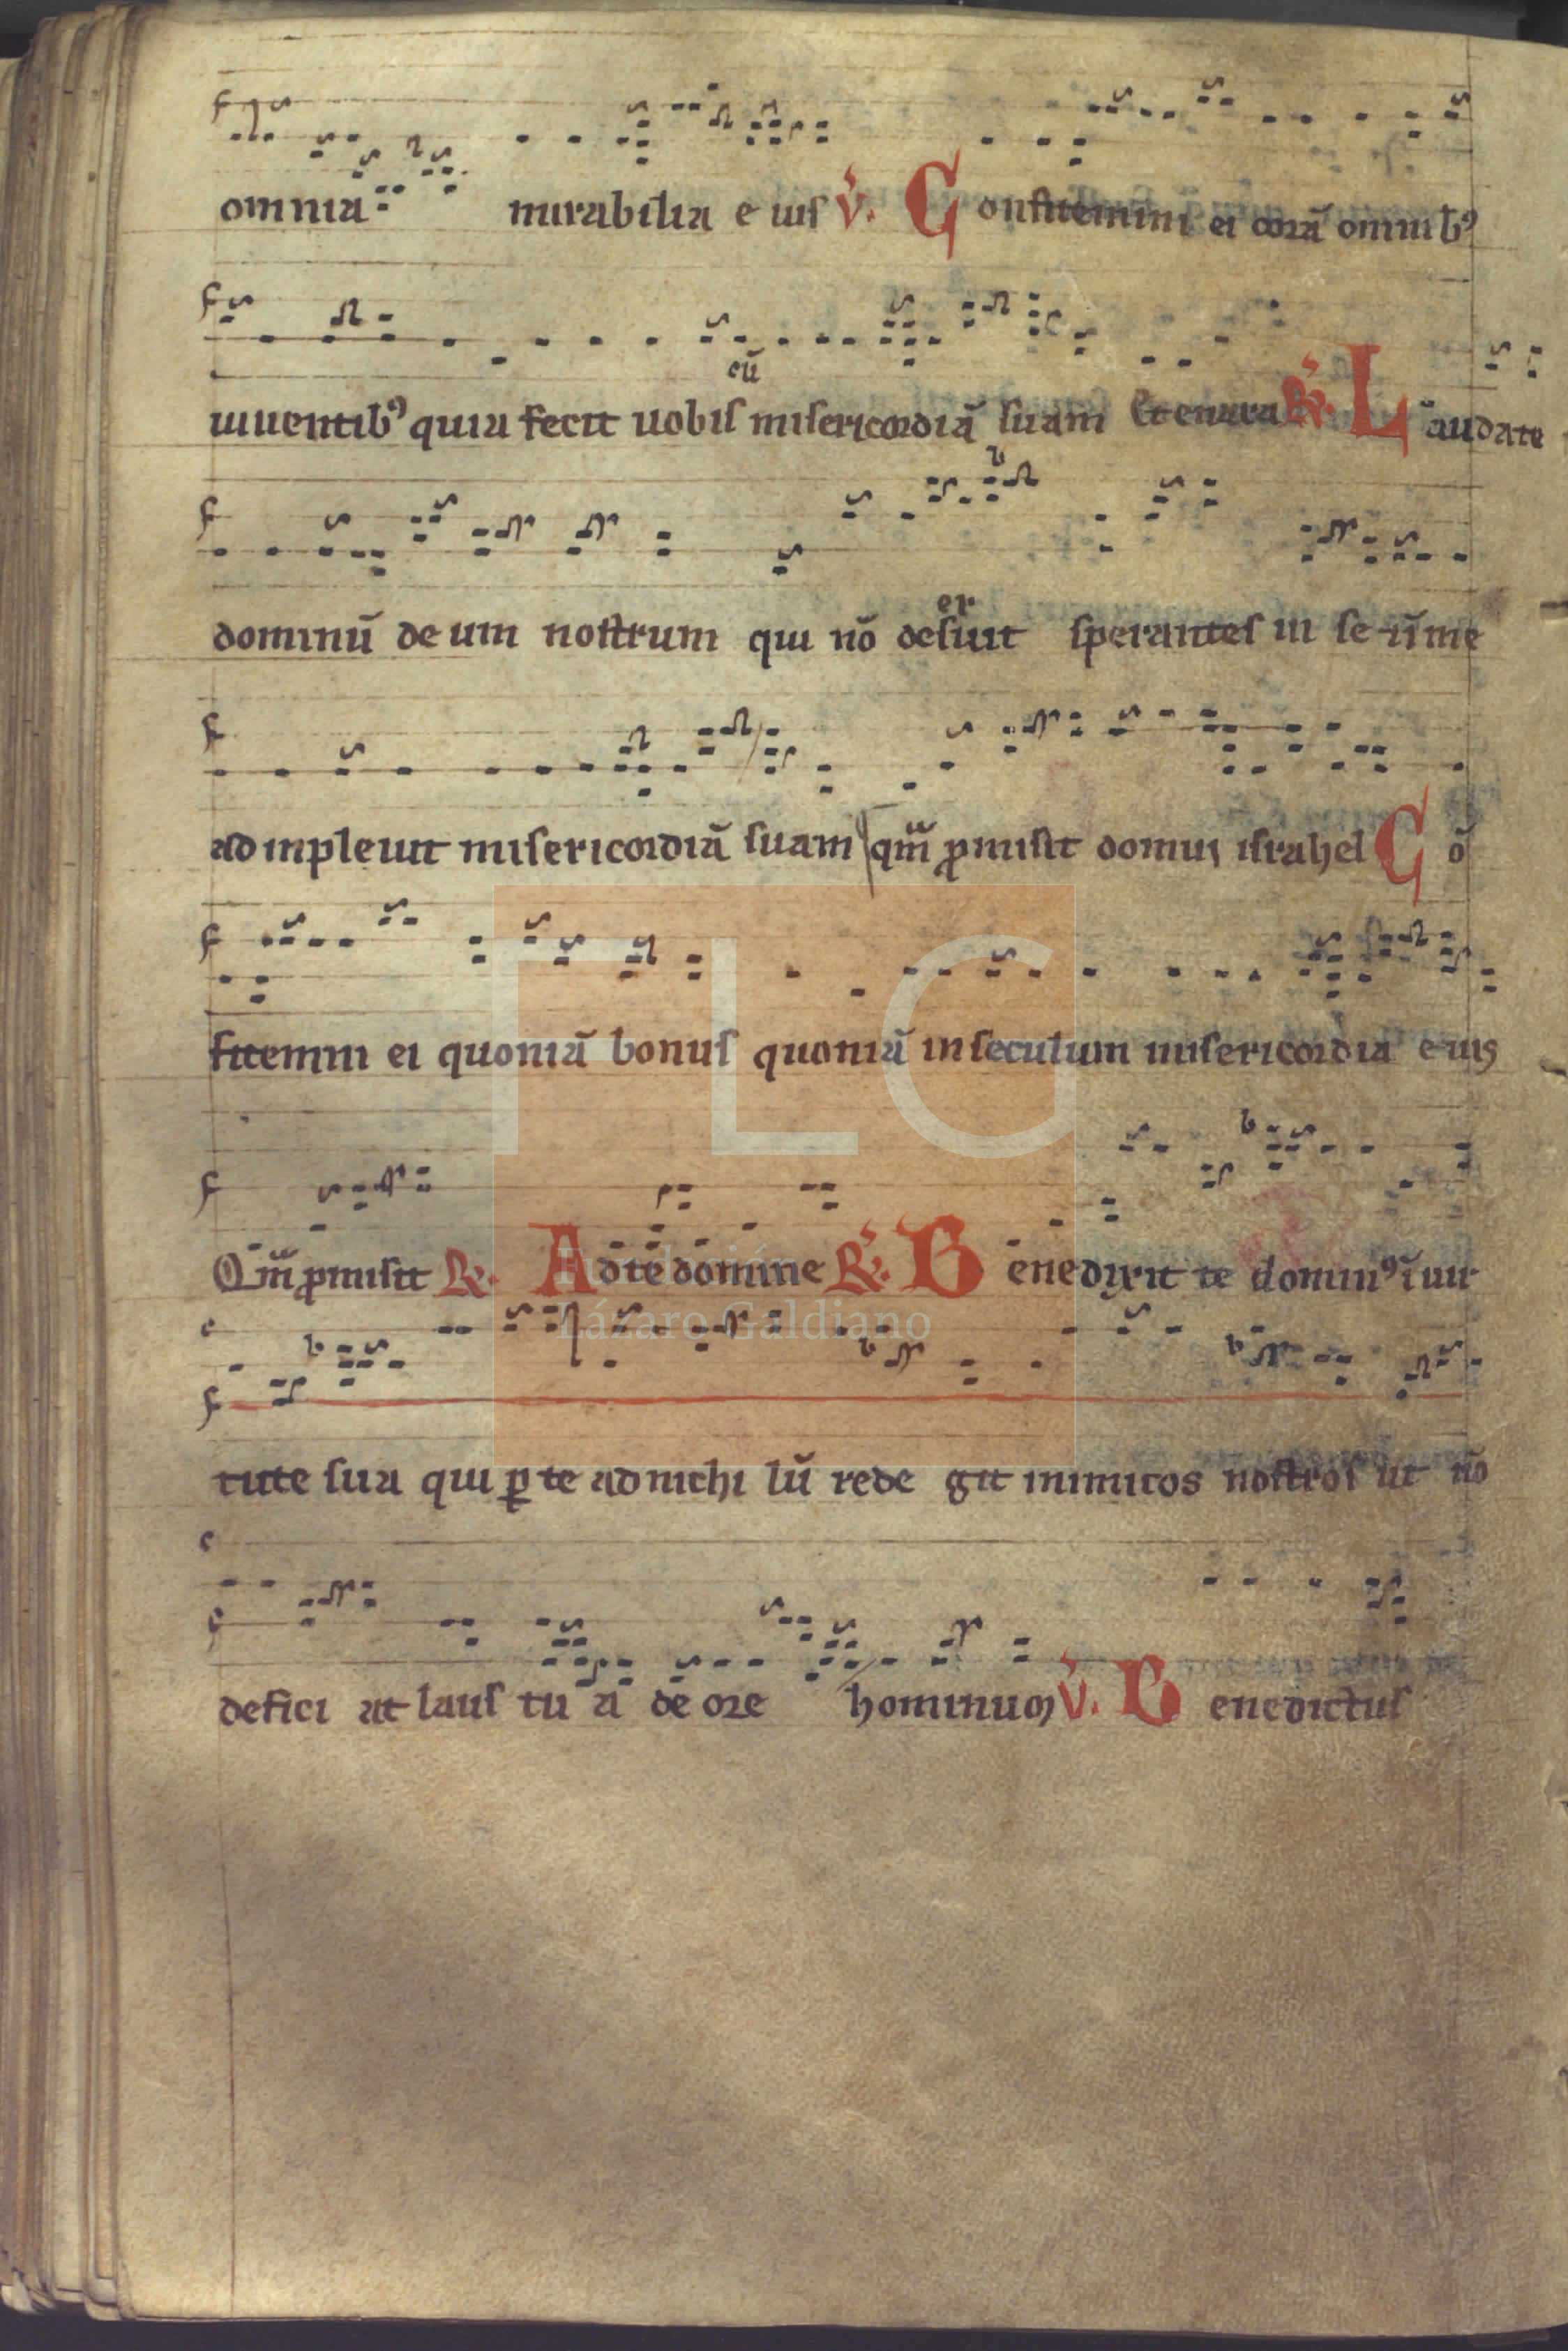 omnia mirabilia e ius v. C onfitemini ei corã omnibꝰ
uiuentibꝰ quia fecit uobiscũ misericordiã suam Et enarra R. L audate
dominũ de um nostrum qui nõ deseruit sperantes in se ī me
ad inpleuit misericordiã suam qm̃ ꝓmisit domui israhel C õ
fitemini ei quoniã bonus quoniã in seculum misericordia e ius
Qm̃ ꝓmisit R. A d te domine R. B enedixit te dominꝰ ī uir
tute sua qui ꝑ te ad nichi lũ rede git inimicos nostros ut nõ
defici at laus tu a de ore hominum v. B enedictus
FLG
Lázaro Galdiano